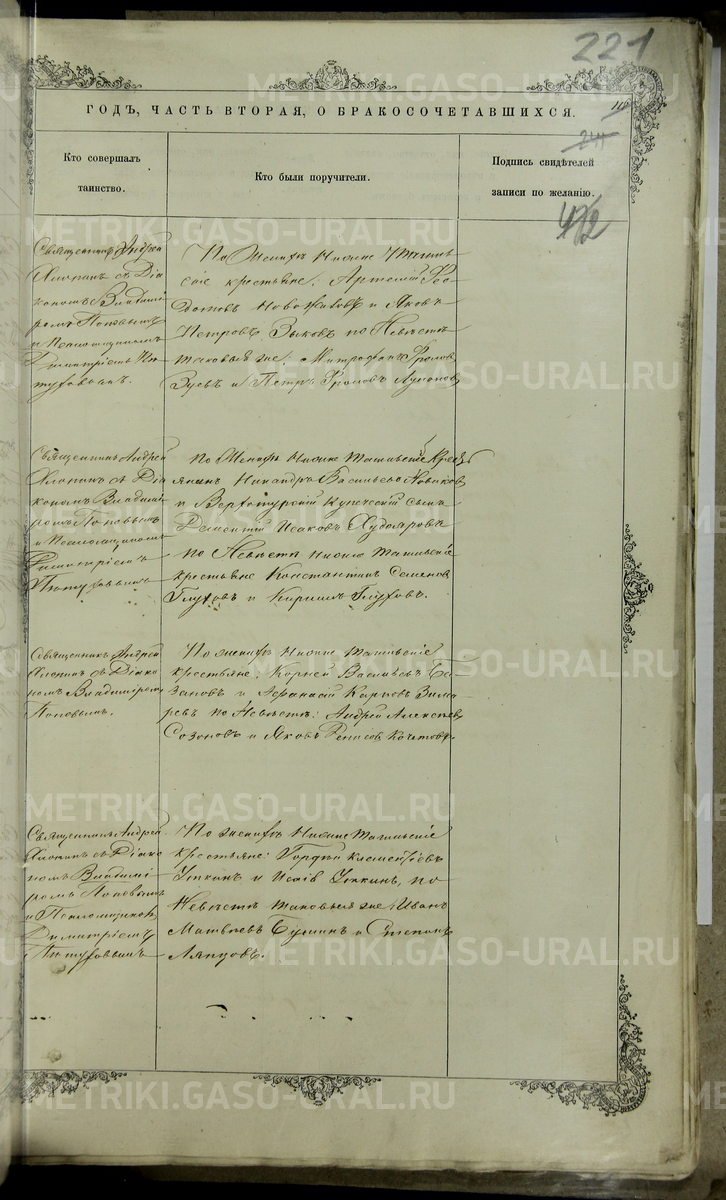 221
ГОДЪ, ЧАСТЬ ВТОРАЯ, О БРАКОСОЧЕТАВШИХСЯ.
116
244
472
Кто совершалъ
таинство.
Кто были поручители.
Подпись свидѣтелей
записи по желанію.
Священникъ Андрей
съ Діа
кономъ Владимі
ромъ Поповымъ
и Псаломщикомъ
Димитріемъ Пѣ
туховымъ.
По Женихѣ Нижне
крестьяне: Артемій Ѳео
и Яковъ
Петровъ Зыковъ по Невѣстѣ
таковыя же: Митрофанъ Фролов
Зуевъ и Петръ Фроловъ
Священникъ Андрей
съ Діа
кономъ Владимі
ромъ Поповымъ
и Псаломщикомъ
Димитріемъ
Пѣтуховымъ
По Женихѣ Нижне Тагильскіе Крест
янинъ Никандръ Васильевъ Новиков
и Верхотурскій Купеческій сынъ
Дементій Исаковъ Худояровъ
по Невѣстѣ Нижне Тагильскіе
крестьяне Константинъ Семенов
Глуховъ и Кирилъ Глуховъ.
Священникъ Андрей
съ Діако
номъ Владиміромъ
Поповымъ.
По женихѣ Нижне Тагильскіе
крестьяне: Корней Васильевъ Ба
зановъ и Афанасій Карповъ
ревъ по Невѣстѣ: Андрей Алексѣев
Созоновъ и Яковъ Денисов Кочетовъ
Священникъ Андрей
съ Діако
номъ Владимі
ромъ Поповымъ
и Псаломщиком
Димитріемъ
Пѣтуховымъ
По женихѣ Нижне Тагильскіе
крестьяне: Гордѣй Климентіевъ
Уткинъ и Исаія Уткинъ, по
Невѣстѣ таковыя же: Иванъ
Матвѣевъ и Степанъ
Ляпцовъ.
METRIKI.GASO-URAL.RU